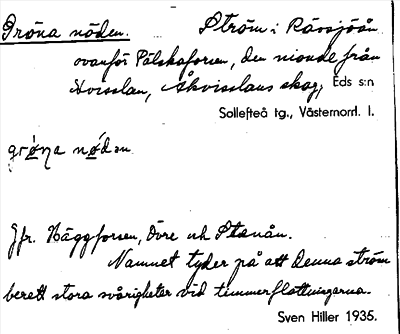 Gröna nöden. Ström i Rörsjöån
ovanför Pålskaforsen, den nionde från
Åkvisslan, Åkvisslans skog, Eds s:n
Sollefteå tg., Västernorrl. l.
grǿna nǿden
Jfr. Häggforsen, Övre uti Stanån.
Namnet tyder på att denna ström
berett stora svårigheter vid timmerflottningarna.
Sven Hiller 1935.